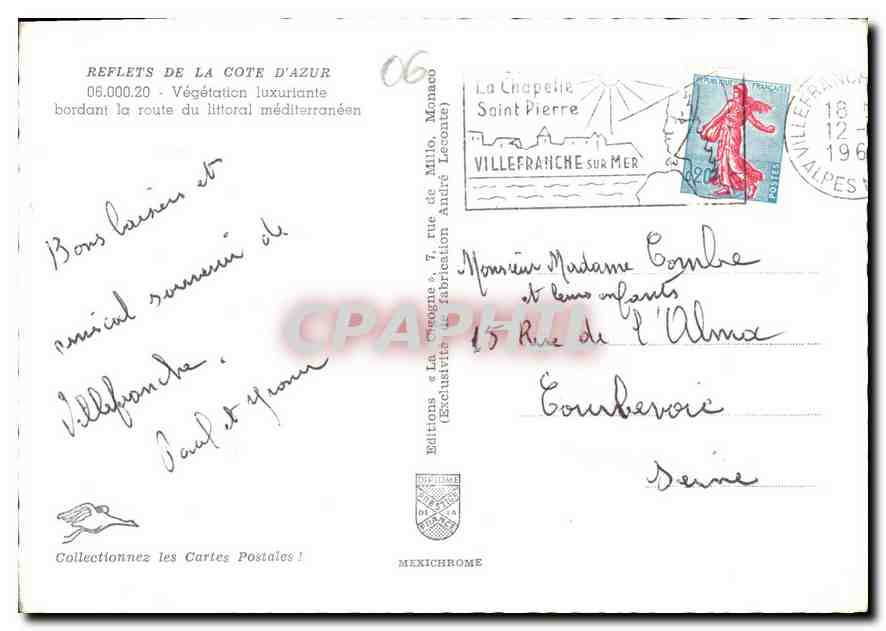 REFLETS DE LA COTE D'AZUR
06.000.20 - Végétation luxuriante
bordant la route du littoral méditerranéen
06
La Chapelle
Saint Pierre
VILLEFRANCHE SUR MER
REPUBLIQUE FRANÇAISE
0,20
POSTES
VILLEFRANCHE
18
12 -
196
ALPES
Bons baisers et
amical souvenir de
Villefranche.
Paul et Yvonne
Editions « La Cigogne », 7, rue de Millo, Monaco
(Exclusivité de fabrication André Leconte)
Monsieur Madame Combe
et leurs enfants
15 Rue de l'Alma
Courbevoie
Seine
CPAPHIL
DIPLOME
PRESTIGE
DE LA
FRANCE
Collectionnez les Cartes Postales !
MEXICHROME